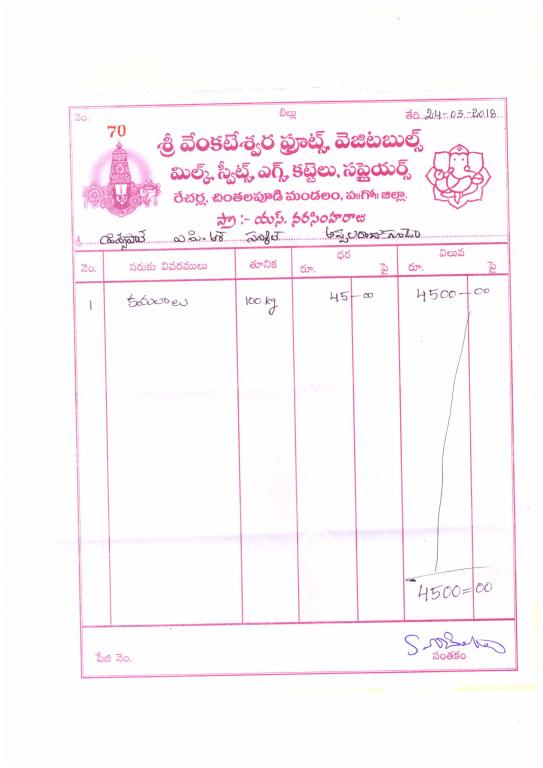 నెం. 70 బిల్లు తేది. 24-03-2018
శ్రీ వేంకటేశ్వర ఫ్రూట్స్, వెజిటబుల్స్
మిల్క్, స్వీట్స్, ఎగ్స్, కట్టెలు, సప్లైయర్స్
రేచర్ల, చింతలపూడి మండలం, ప॥గో॥ జిల్లా.
ప్రొ :- యస్. నరసింహరాజు
శ్రీ
నెం. సరుకు వివరములు తూనిక ధర రూ. పై విలువ రూ. పై
1 కమలాలు 100 kg 45-00 4500-00
4500=00
పేజి నెం. సంతకం